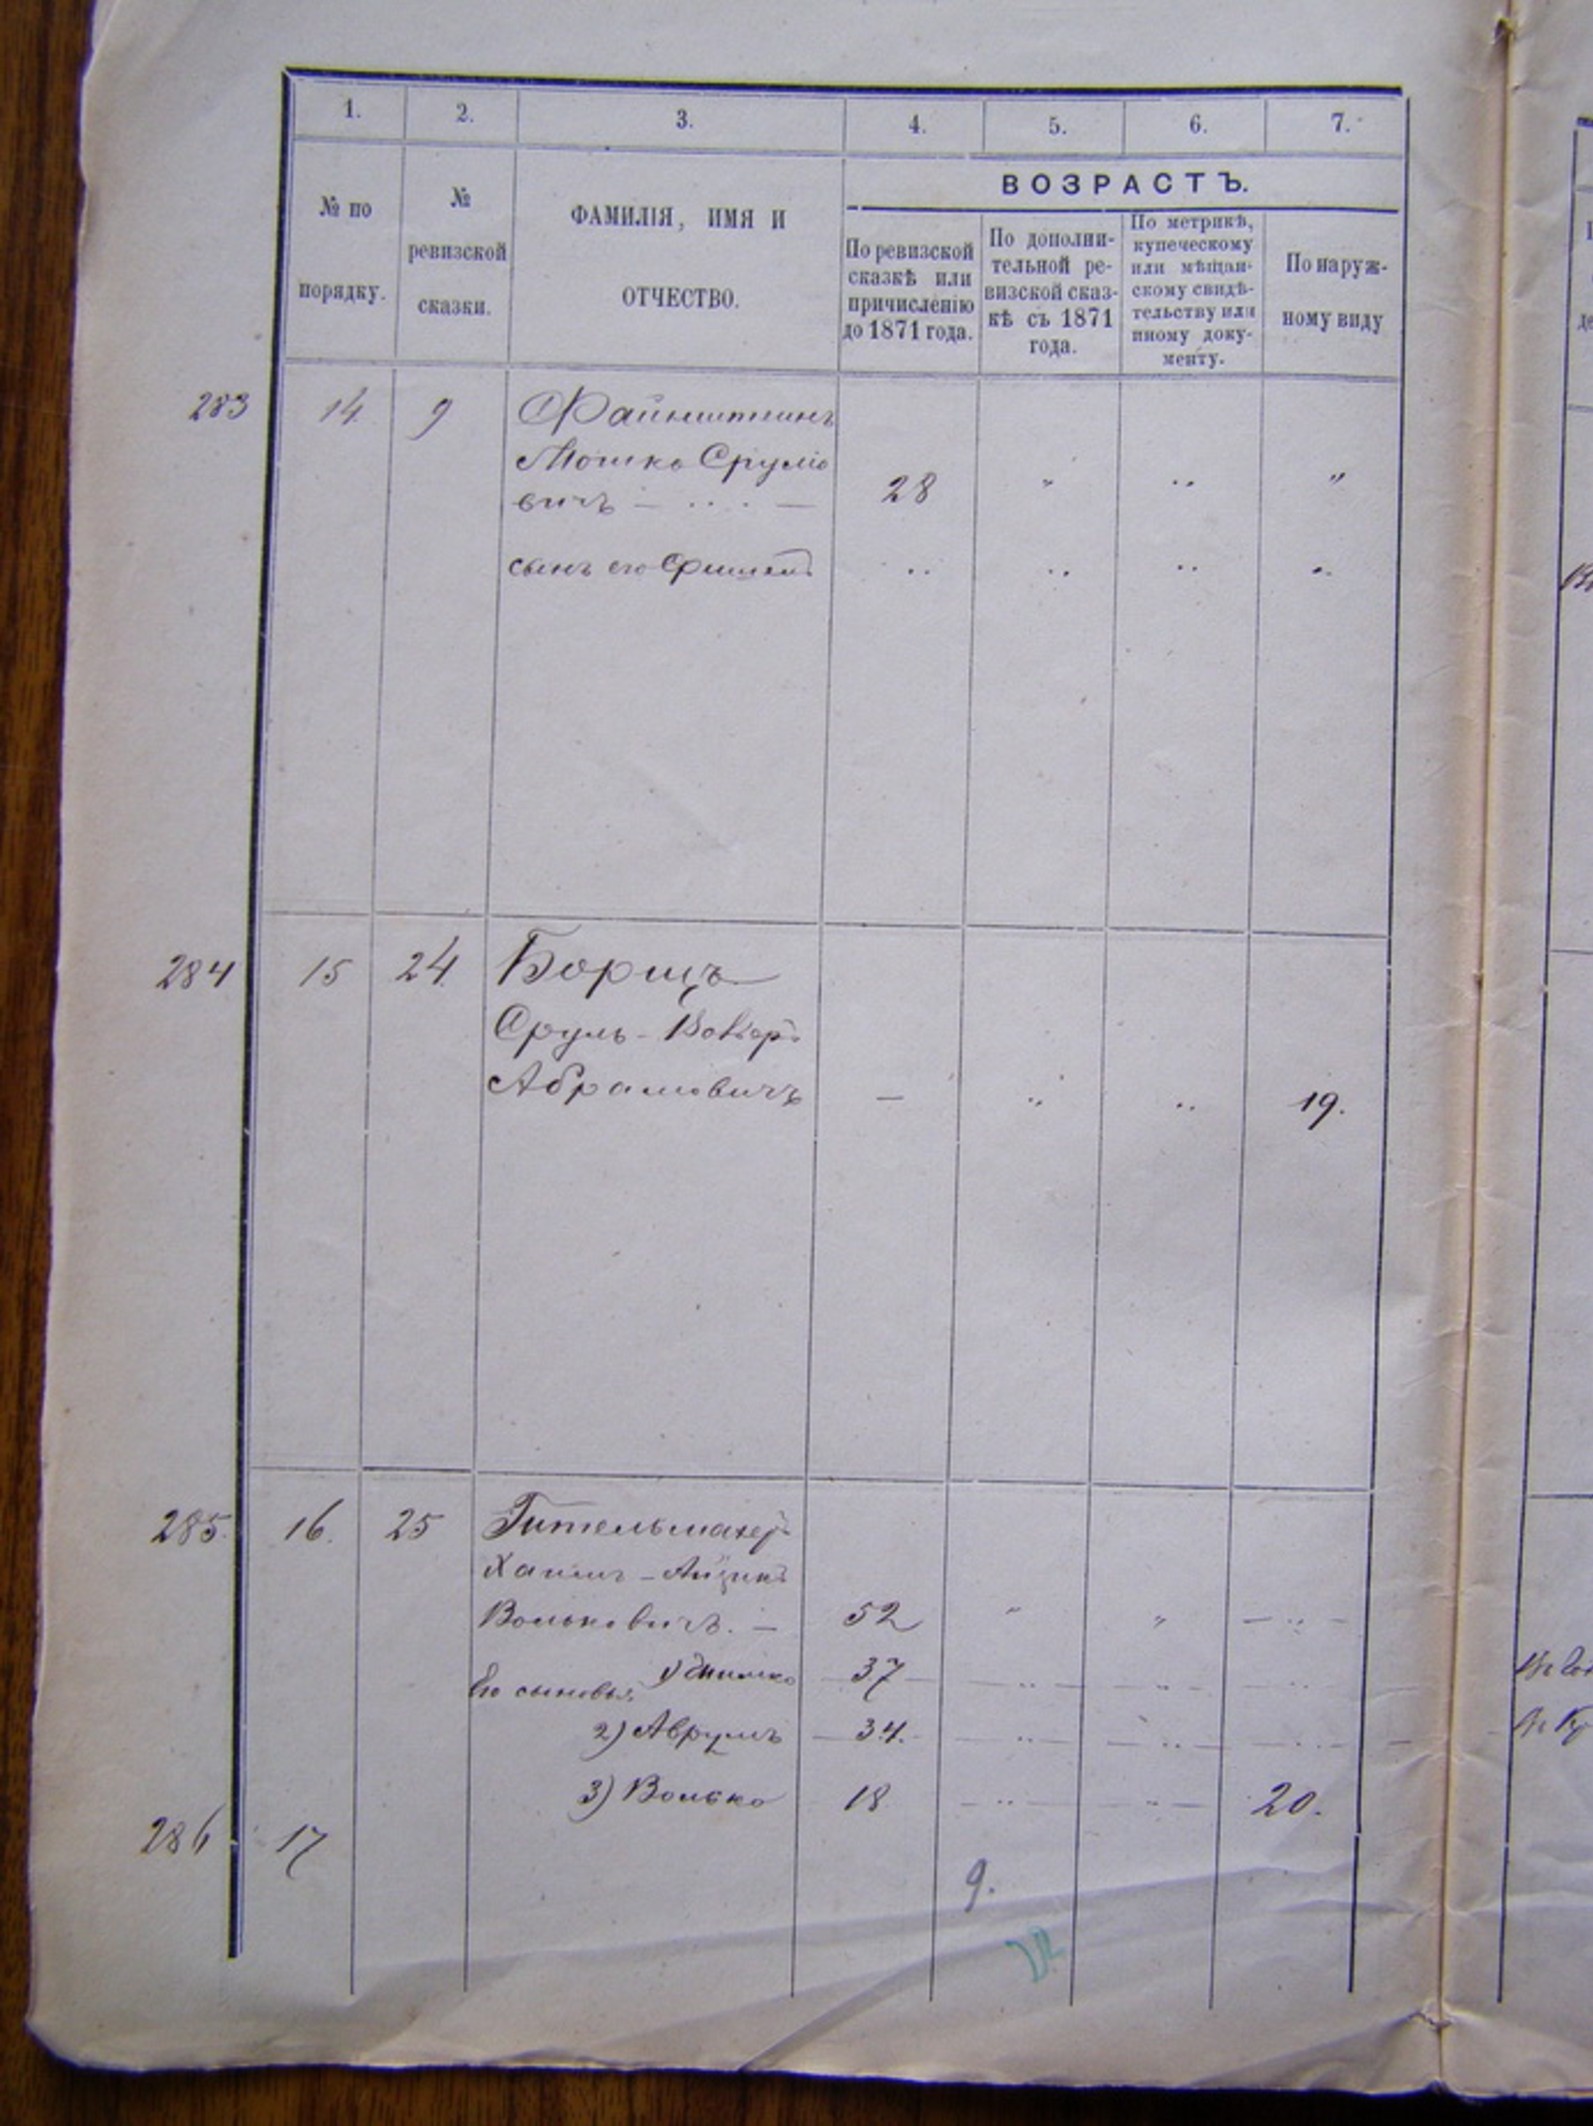 1. 2. 3. 4. 5. 6. 7.
№ по порядку.
№ ревизской сказки.
ФАМИЛІЯ, ИМЯ И
ОТЧЕСТВО.
ВОЗРАСТЪ.
По ревизской
сказкѣ или
причисленію
до 1871 года.
По дополни-
тельной ре-
визской сказ-
кѣ съ 1871
года.
По метрикѣ,
купеческому
или мѣщан-
скому свидѣ-
тельству или
иному доку-
менту.
По наруж-
ному виду
283 14. 9 Файнштейнъ
Мошко Срулiо
вичъ — 28 " " "
сынъ его Фишель
284 15 24. Борщъ
Сруль-Вольф
Абрамовичъ — " " 19.
285. 16. 25 Гительмахеръ
Хаимъ-Айзикъ
Вольковичъ. — 52 " " — " —
Его сыновья: 1) Шимко 37
2) Аврумъ — 34.
3) Волько 18 20.
286 17
9.